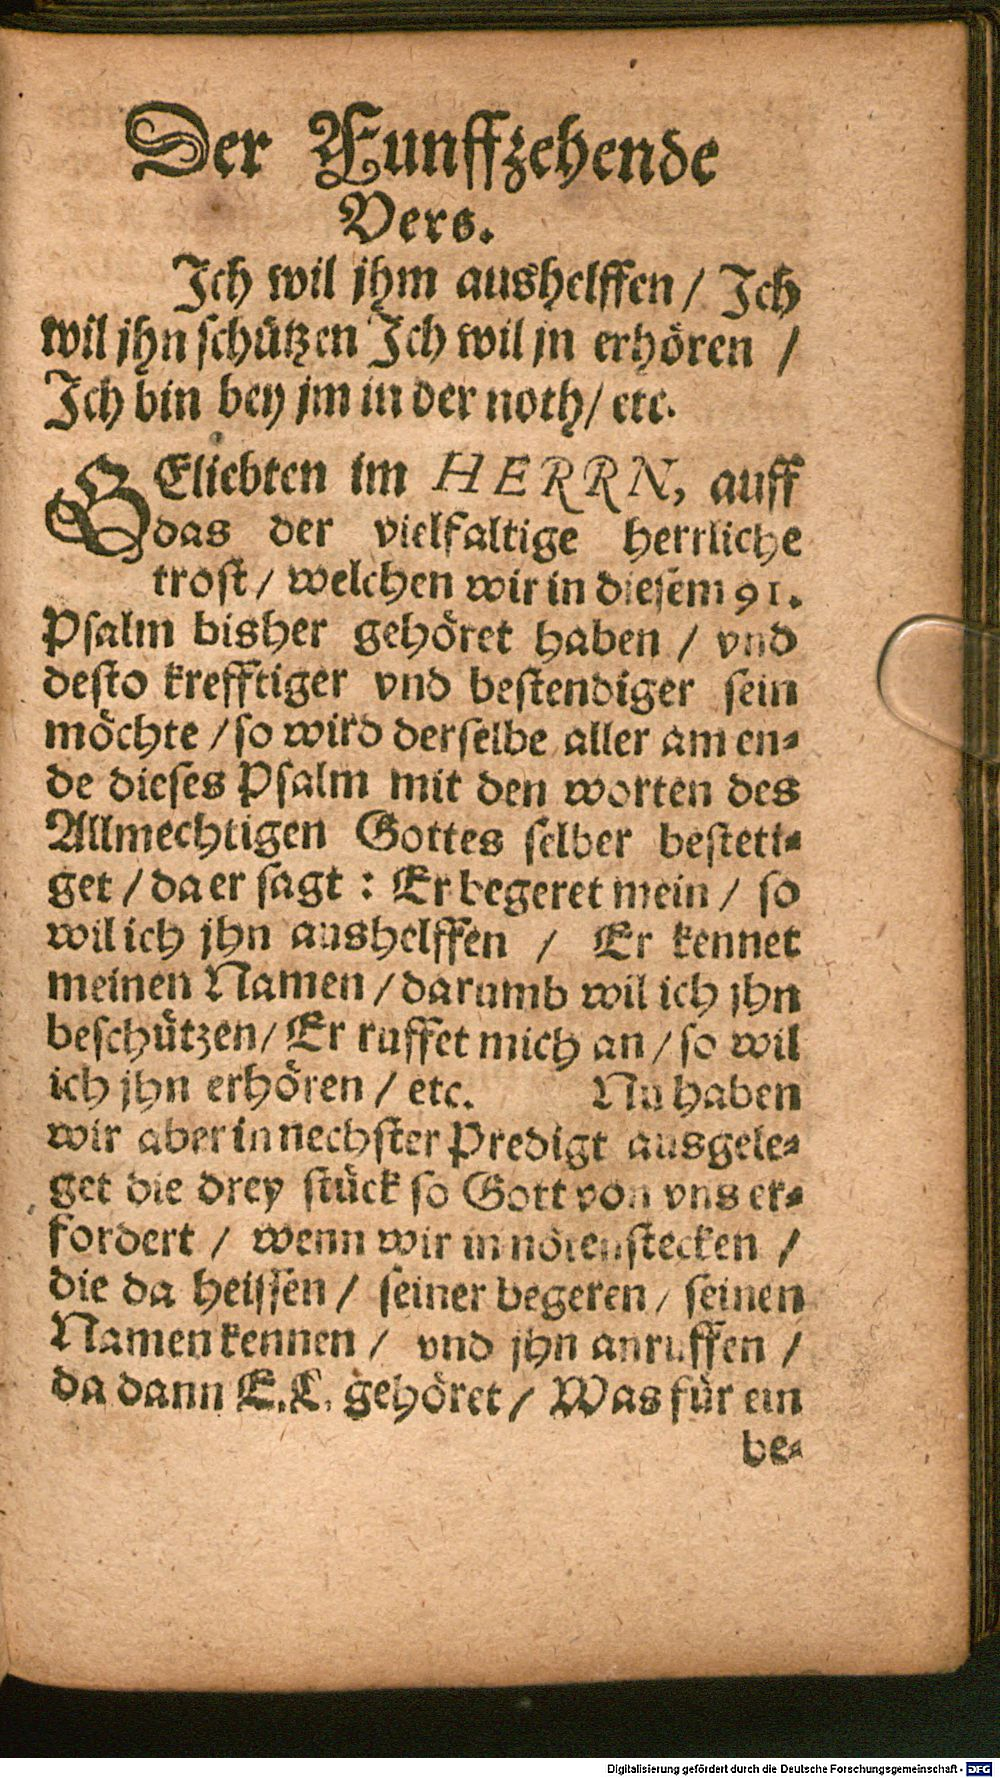 Der Funffzehende
Vers.
Ich wil jhm aushelffen / Ich
wil jhn schützen Ich wil jn erhören /
Ich bin bey jm in der noth / etc.
GEliebten im HERRN, auff
das der vielfaltige herrliche
trost / welchen wir in diesem 91.
Psalm bisher gehöret haben / vnd
desto krefftiger vnd bestendiger sein
möchte / so wird derselbe aller am en-
de dieses Psalm mit den worten des
Allmechtigen Gottes selber besteti-
get / da er sagt : Er begeret mein / so
wil ich jhn aushelffen / Er kennet
meinen Namen / darumb wil ich jhn
beschützen / Er ruffet mich an / so wil
ich jhn erhören / etc. Nu haben
wir aber in nechster Predigt ausgele-
get die drey stück so Gott von vns er-
fordert / wenn wir in nöten stecken /
die da heissen / seiner begeren / seinen
Namen kennen / vnd jhn anruffen /
da dann E.L. gehöret / Was für ein
be-
Digitalisierung gefördert durch die Deutsche Forschungsgemeinschaft - DFG